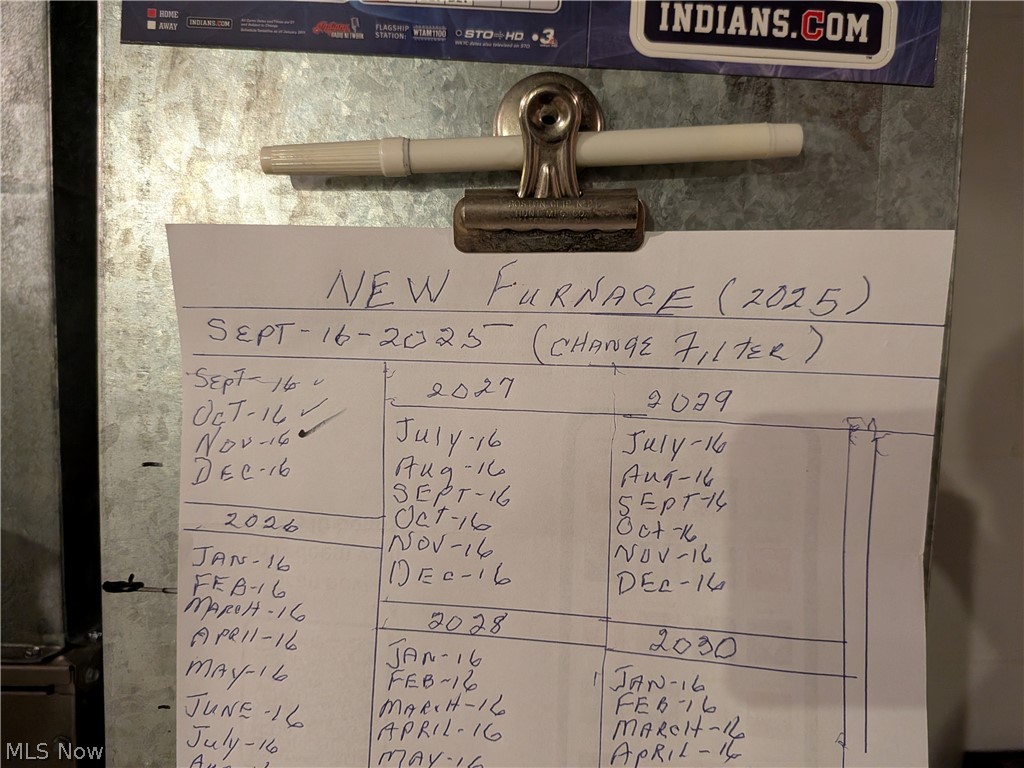 HOME
AWAY
INDIANS.COM
RADIO NETWORK
FLAGSHIP STATION:
WTAM1100
STO HD
3
INDIANS.COM
NEW FURNACE (2025)
SEPT-16-2025 (CHANGE FILTER)
Sept-16 ✓
OCT-16 ✓
NOV-16 ✓
DEC-16
2026
JAN-16
FEB-16
MARCH-16
APRIL-16
MAY-16
JUNE-16
July-16
2027
July-16
Aug-16
SEPT-16
OCT-16
NOV-16
DEC-16
2028
JAN-16
FEB-16
MARCH-16
APRIL-16
MAY-16
2029
July-16
Aug-16
SEPT-16
Oct-16
NOV-16
DEC-16
2030
JAN-16
FEB-16
MARCH-16
APRIL-16
MLS Now